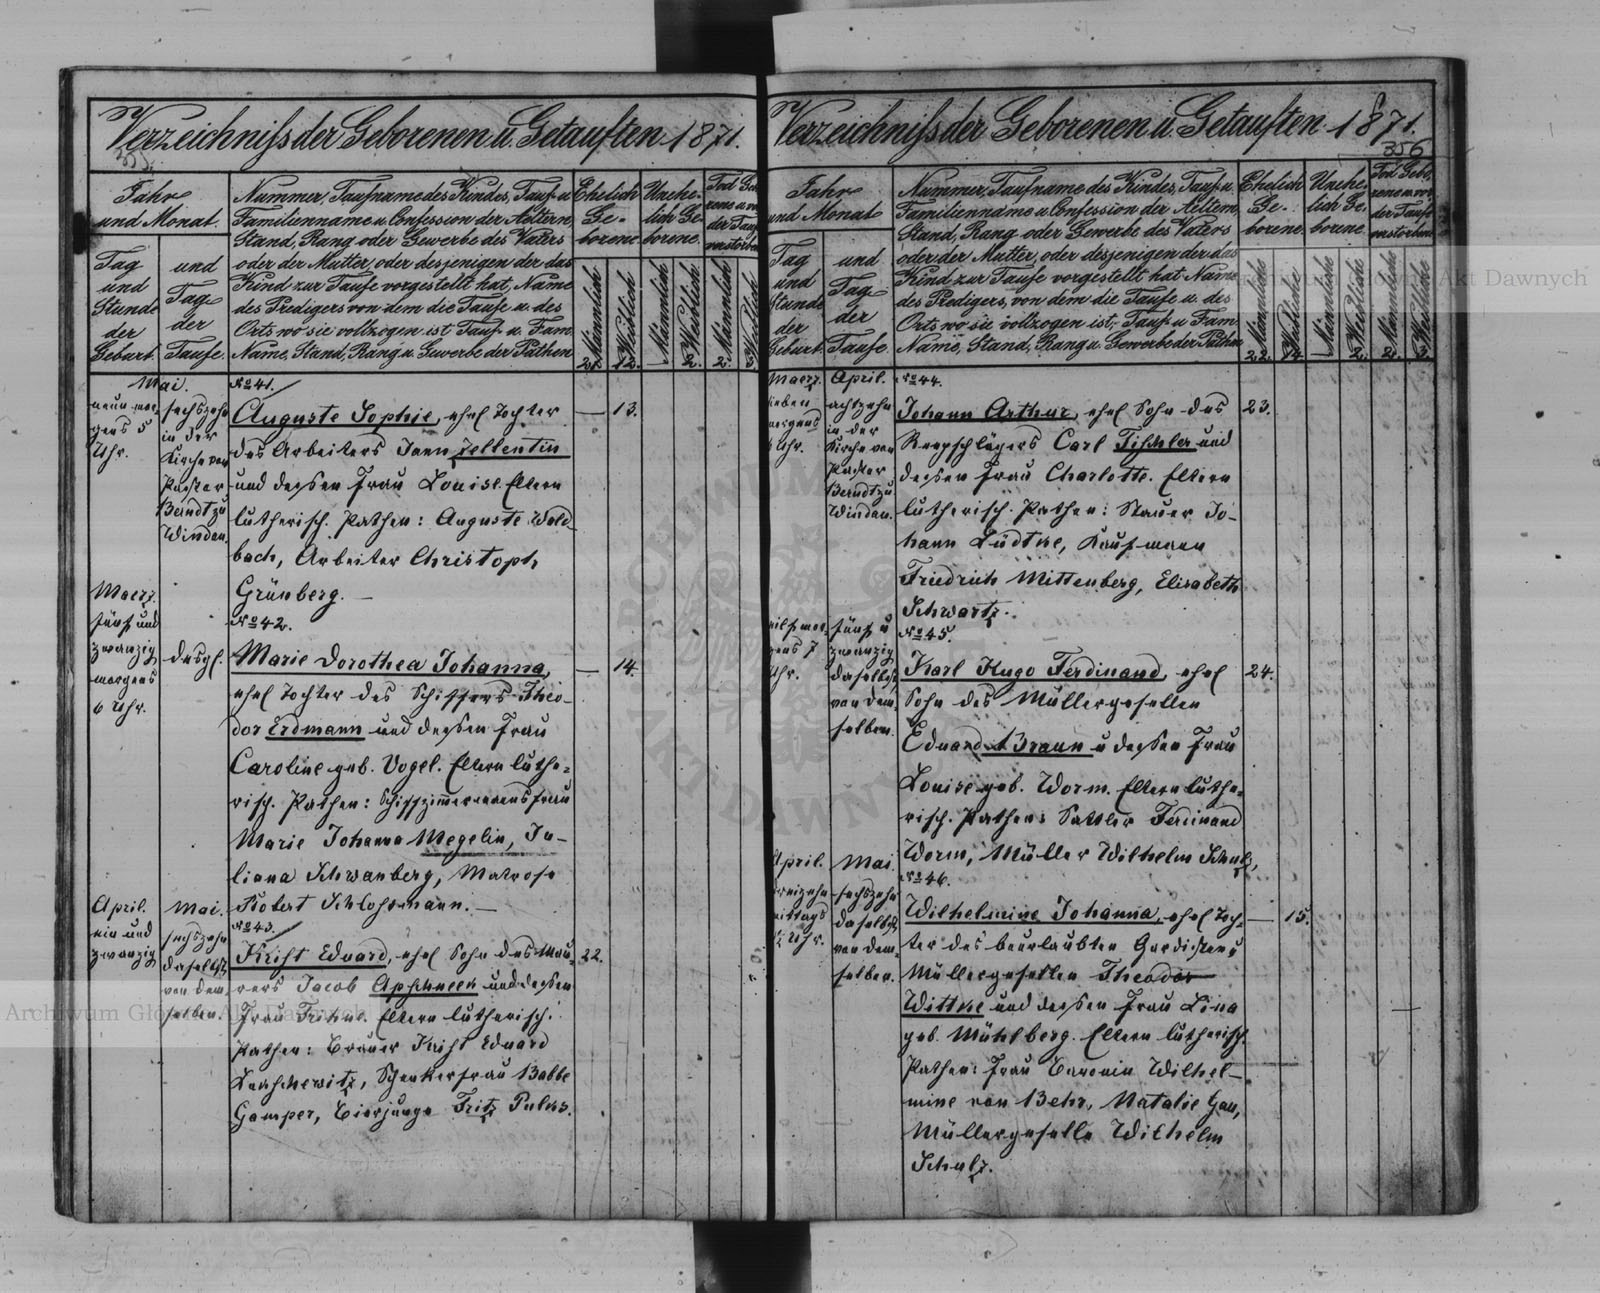 Verzeichniss der Geborenen u. Getauften 1871.
Jahr
und Monat.
Tag
und
Stunde
der
Geburt.
und
Tag
der
Taufe.
Nummer, Taufname des Kindes, Tauf- u
Familienname u Confession der Aeltern,
Stand, Rang oder Gewerbe des Vaters
oder der Mutter, oder desjenigen der das
Kind zur Taufe vorgestellt hat, Name
des Predigers von dem die Taufe u. des
Orts wo sie vollzogen ist, Tauf- u Fam.
Name, Stand, Rang u. Gewerbe der Pathen
Ehelich
Ge-
borene.
Unehe-
lich Ge-
borene.
Männlich
Weiblich
Männlich
Weiblich
Männlich
Weiblich
21. 12. — 2. 2. 3.
Mai.
neun mor-
gens 5
Uhr.
sechszehn
in der
Kirche von
Pastor
Berndt zu
Windau.
No 41.
Auguste Sophie, ehel Tochter
des Arbeiters Jann Zellentin
und dessen Frau Louise. Eltern
lutherisch. Pathen: Auguste Wold
bach, Arbeiter Christoph
Grünberg. —
— 13.
Maerz.
fünf und
zwanzig
morgens
6 Uhr.
desgl.
No 42.
Marie Dorothea Johanna,
ehel Tochter des Schiffers Theo-
dor Erdmann und dessen Frau
Caroline geb. Vogel. Eltern luthe-
risch. Pathen: Schiffzimmermannsfrau
Marie Johanna Megelin, Ju-
liana Schwanberg, Matrose
Robert Schlossmann. —
— 14.
April.
ein und
zwanzig
Mai.
sechszehn
daselbst
von dem-
selben.
No 43.
Krist Eduard, ehel Sohn des Mau-
rers Jacob Apschneek und dessen
Frau Trihne. Eltern lutherisch.
Pathen: Brauer Krist Eduard
Schenkersfrau Babbe
Gamper, Bierjunge Fritz
22.
Verzeichniss der Geborenen u. Getauften 1871.
356
Jahr
und Monat
Tag
und
Stunde
der
Geburt.
und
Tag
der
Taufe.
Nummer, Taufname des Kindes, Tauf- u.
Familienname u Confession der Aeltern,
Stand, Rang oder Gewerbe des Vaters
oder der Mutter, oder desjenigen der das
Kind zur Taufe vorgestellt hat, Name
des Predigers, von dem die Taufe u. des
Orts wo sie vollzogen ist, Tauf- u Fam.
Name, Stand, Rang u. Gewerbe der Pathen
Ehelich
Ge-
borene.
Unehe-
lich Ge-
borene.
Männliche
Weibliche
Männliche
Weibliche
Männliche
Weibliche
22. 14. — 2. 2. 3.
Maerz.
sieben
morgens
Uhr.
April.
achtzehn
in der
Kirche von
Pastor
Berndt zu
Windau.
No 44.
Johann Arthur, ehel Sohn des
Reepschlägers Carl Tischler und
dessen Frau Charlotte. Eltern
lutherisch. Pathen: Stauer Jo-
hann Lüdtke, Kaufmann
Friedrich Mittenberg, Elisabeth
Schwartz.
23.
eilf mor-
gens 7
Uhr.
fünf u
zwanzig
daselbst
von dem-
selben.
No 45.
Karl Hugo Ferdinand, ehel
Sohn des Müllergesellen
Eduard Braun u dessen Frau
Louise geb. Worm. Eltern luthe-
risch. Pathen: Sattler Ferdinand
Worm, Müller Wilhelm Schulz,
24.
April.
dreizehn
mittags
Uhr.
Mai
sechszehn
daselbst
von dem-
selben.
No 46.
Wilhelmine Johanna, ehel Toch-
ter des beurlaubten Gardisten u
Müllergesellen Theodor
Wittke und dessen Frau Lina
geb. Mühlberg. Eltern lutherisch.
Pathen: Frau Baronin Wilhel-
mine von Behr, Natalie Gau,
Müllergeselle Wilhelm
Schulz.
— 15.
Archiwum Główne Akt Dawnych
Archiwum Główne Akt Dawnych
ARCHIWUM
AKT DAWNYCH